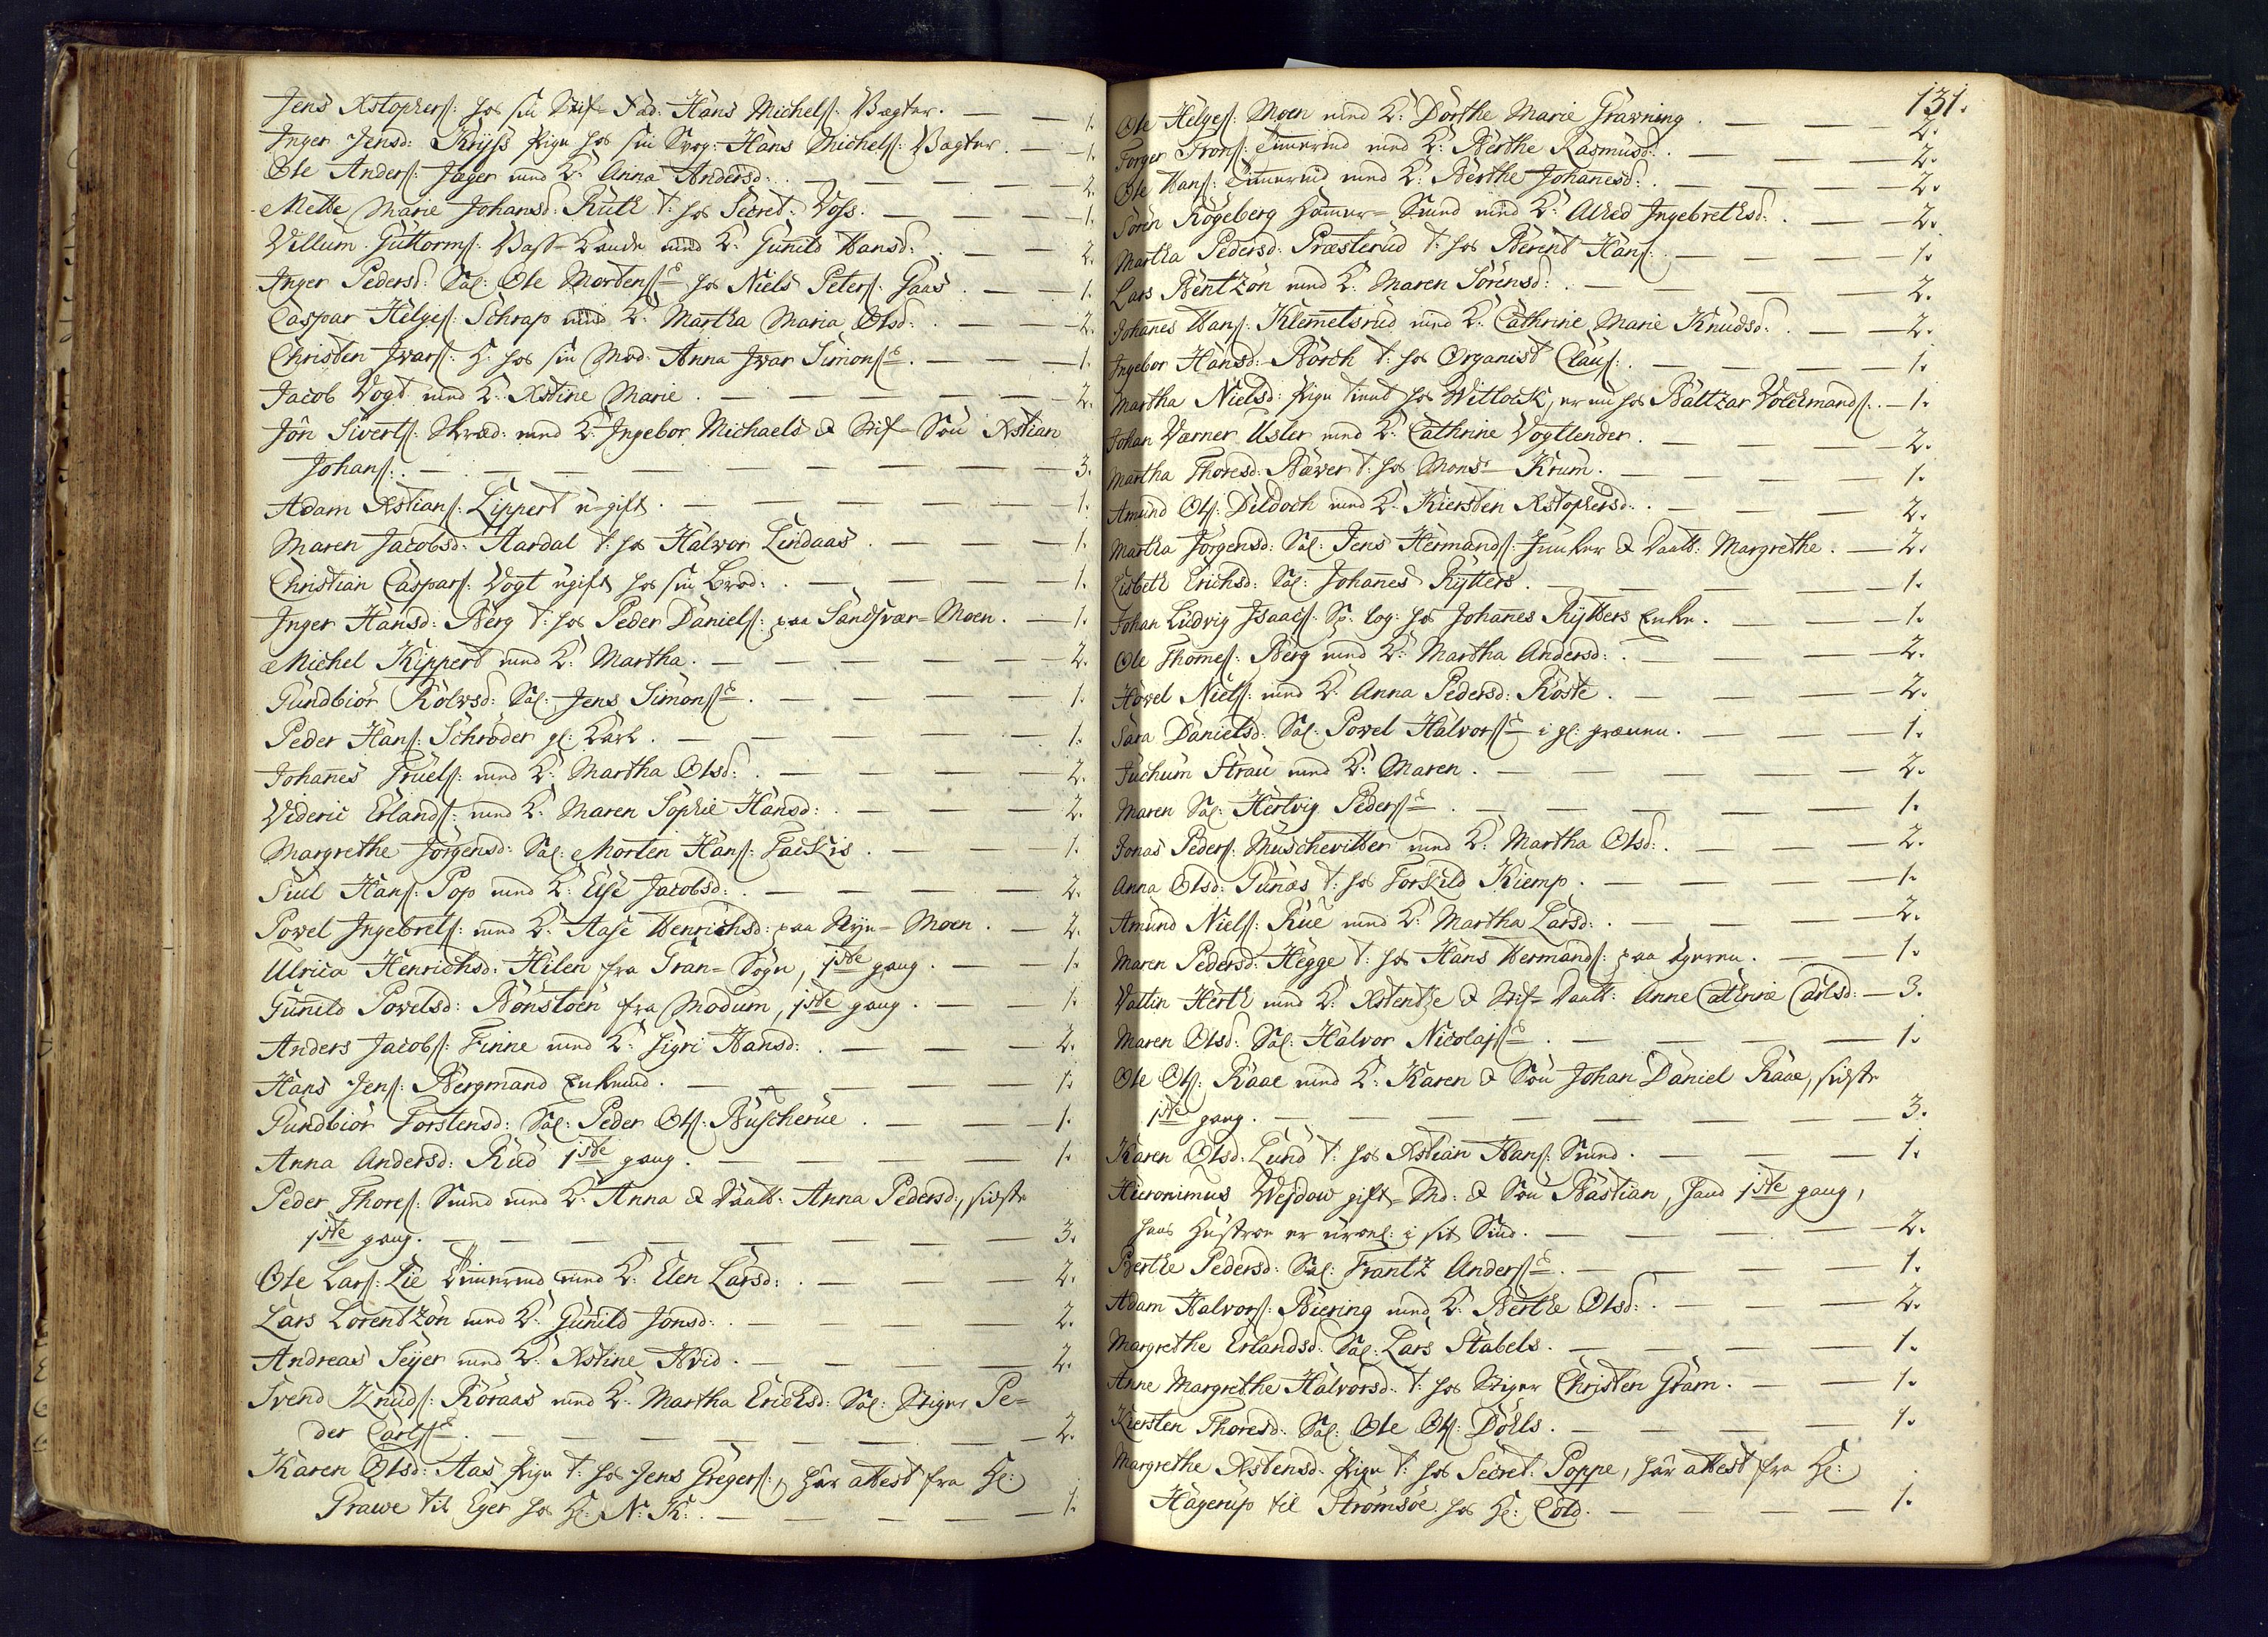 Jens Xstophers: hos sin Stif-Fad: Hans Michels: Vægter. — 1.
Inger Jensd: Kryss Pige hos sin Svog: Hans Michels: Vægter. — 1.
Ole Anders: Jæger med K: Anna Andersd: — 2.
Mette Marie Johansd: Ruth t: hos Secret: Voss. — 1.
Villum Guttorms: med K: Gunild Hansd: — 2.
Inger Pedersd: Sal: Ole Mortens: hos Niels Peters: Gaas. — 1.
Caspar Helges: Schrap med K: Martha Maria Olsd: — 2.
Christen Ivars: hos sin Mod: Anna Ivar Simons: — 1.
Jacob Vogt med K: Xstine Marie. — 2.
Jon Siverts: Skræd: med K: Ingebor Michaels & Stif-Søn Xstian
Johans: — 3.
Adam Xstians: Lippert u-gift. — 1.
Maren Jacobsd: Aardal t: hos Halvor Lindaas. — 1.
Christian Caspars: Vogt ugift hos sin Brod: — 1.
Inger Hansd: Berg t: hos Peder Daniels: paa Sandsvær-Moen. — 1.
Michel Kippert med K: Martha. — 2.
Gundbiør Rolvsd: Sal: Jens Simons: — 1.
Peder Hans: Schrøder gl: Karl. — 1.
Johanes Truels: med K: Martha Olsd: — 2.
Videric Erlands: med K: Maren Sophie Hansd: — 2.
Margrethe Jørgensd: Sal: Morten Hans: — 1.
Siul Hans: Pop med K: Else Jacobsd: — 2.
Povel Ingebrets: med K: Aase Henrichsd: paa Nye-Moen. — 2.
Ulrica Henrichsd: Hilen fra Gran-Sogn, 1ste gang. — 1.
Gunild Povelsd: Bønstoen fra Modum, 1ste gang. — 1.
Anders Jacobs: Finne med K: Sigri Hansd: — 2.
Hans Jens: Bergmand Enkemd. — 1.
Gundbiør Torstensd: Sal: Peder Ols: Buscherue. — 1.
Anna Andersd: Rud 1ste gang. — 1.
Peder Thores: Smed med K: Anna & Daatt: Anna Pedersd:, sidste
1ste gang. — 3.
Ole Lars: Lie Timermd med K: Elen Larsd: — 2.
Lars Lorentzøn med K: Gunild Jonsd: — 2.
Andreas Seyer med K: Xstine Hvid. — 2.
Svend Knuds: Roraas med K: Martha Erichsd: Sal: Stiger Pe-
der Carls: — 2.
Karen Olsd: Aas Pige t: hos Jens Gregers:, har attest fra Hr:
Grawe til Eger hos Hr: N: K: — 1.
131.
Ole Helges: Moen med K: Dorthe Marie Gravning. — 2.
Torger Trons: Timermd med K: Berthe Rasmusd: — 2.
Ole Hans: Timermd med K: Berthe Johanesd: — 2.
Søren Rogeberg Hamer-Smed med K: Alhed Ingebrethsd: — 2.
Martha Pedersd: Præsterud t: hos Berent Hans: — 1.
Lars Bentzøn med K: Maren Sørensd: — 2.
Johanes Hans: Klemetsrud med K: Cathrine Marie Knudsd: — 2.
Ingebor Hansd: Borch t: hos Organist Claus: — 1.
Martha Nielsd: Pige tient hos Wittolck, er nu hos Baltzar Volckmands: — 1.
Johan Værner Usler med K: Cathrine Vogtlender. — 2.
Martha Thoresd: Bæver t: hos Monsr Krum. — 1.
Amund Ols: Deldoch med K: Kiersten Xstophersd: — 2.
Martha Jørgensd: Sal: Jens Hermands: Junker & Daatt: Margrethe. — 2.
Lisbeth Erichsd: Sal: Johanes Rytters. — 1.
Johan Ludvig Isaacs: Sp: log: hos Johanes Rytters Enke. — 1.
Ole Thomes: Berg med K: Martha Andersd: — 2.
Hovel Niels: med K: Anna Pedersd: Koste. — 2.
Sara Danielsd: Sal: Povel Halvors: i gl: — 1.
Juchum Strau med K: Maren. — 2.
Maren Sal: Hertvig Peders: — 1.
Jonas Peders: Muschevitter med K: Martha Olsd: — 2.
Anna Olsd: Gunæs t: hos Torkild Kiemp. — 1.
Amund Niels: Rue med K: Martha Larsd: — 2.
Maren Pedersd: Hegge t: hos Hans Hermands: paa — 1.
Vallin Herth med K: Xstentze & Stif-Daatt: Anne Cathrine Carlsd: — 3.
Maren Olsd: Sal: Halvor Nicolajs: — 1.
Ole Ols: Raae med K: Karen & Søn Johan Daniel Raae, sidste
1ste gang. — 3.
Karen Olsd: Lund t: hos Xstian Hans: Smed. — 1.
Hieronimus Wejdow gift-Md: & Søn Bastian, hand 1ste gang,
hans Hustroe er uroel: i sit Sind. — 2.
Berthe Pedersd: Sal: Frantz Anders: — 1.
Adam Halvors: Biering med K: Berthe Olsd: — 2.
Margrethe Erlandsd: Sal: Lars Stabels. — 1.
Anne Margrethe Halvorsd: t: hos Stiger Christen Gram. — 1.
Kiersten Thoresd: Sal: Ole Ols: Dølls. — 1.
Margrethe Xstensd: Pige t: hos Secret: Poppe, har attest fra Hr:
Hagerup til Strømsøe hos Hr: Cold. — 1.